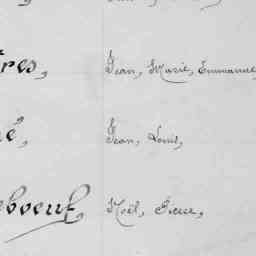 res, Jean, Marie, Emmanuel
é, Jean, Louis,
eboeuf, Noël, Pierre,